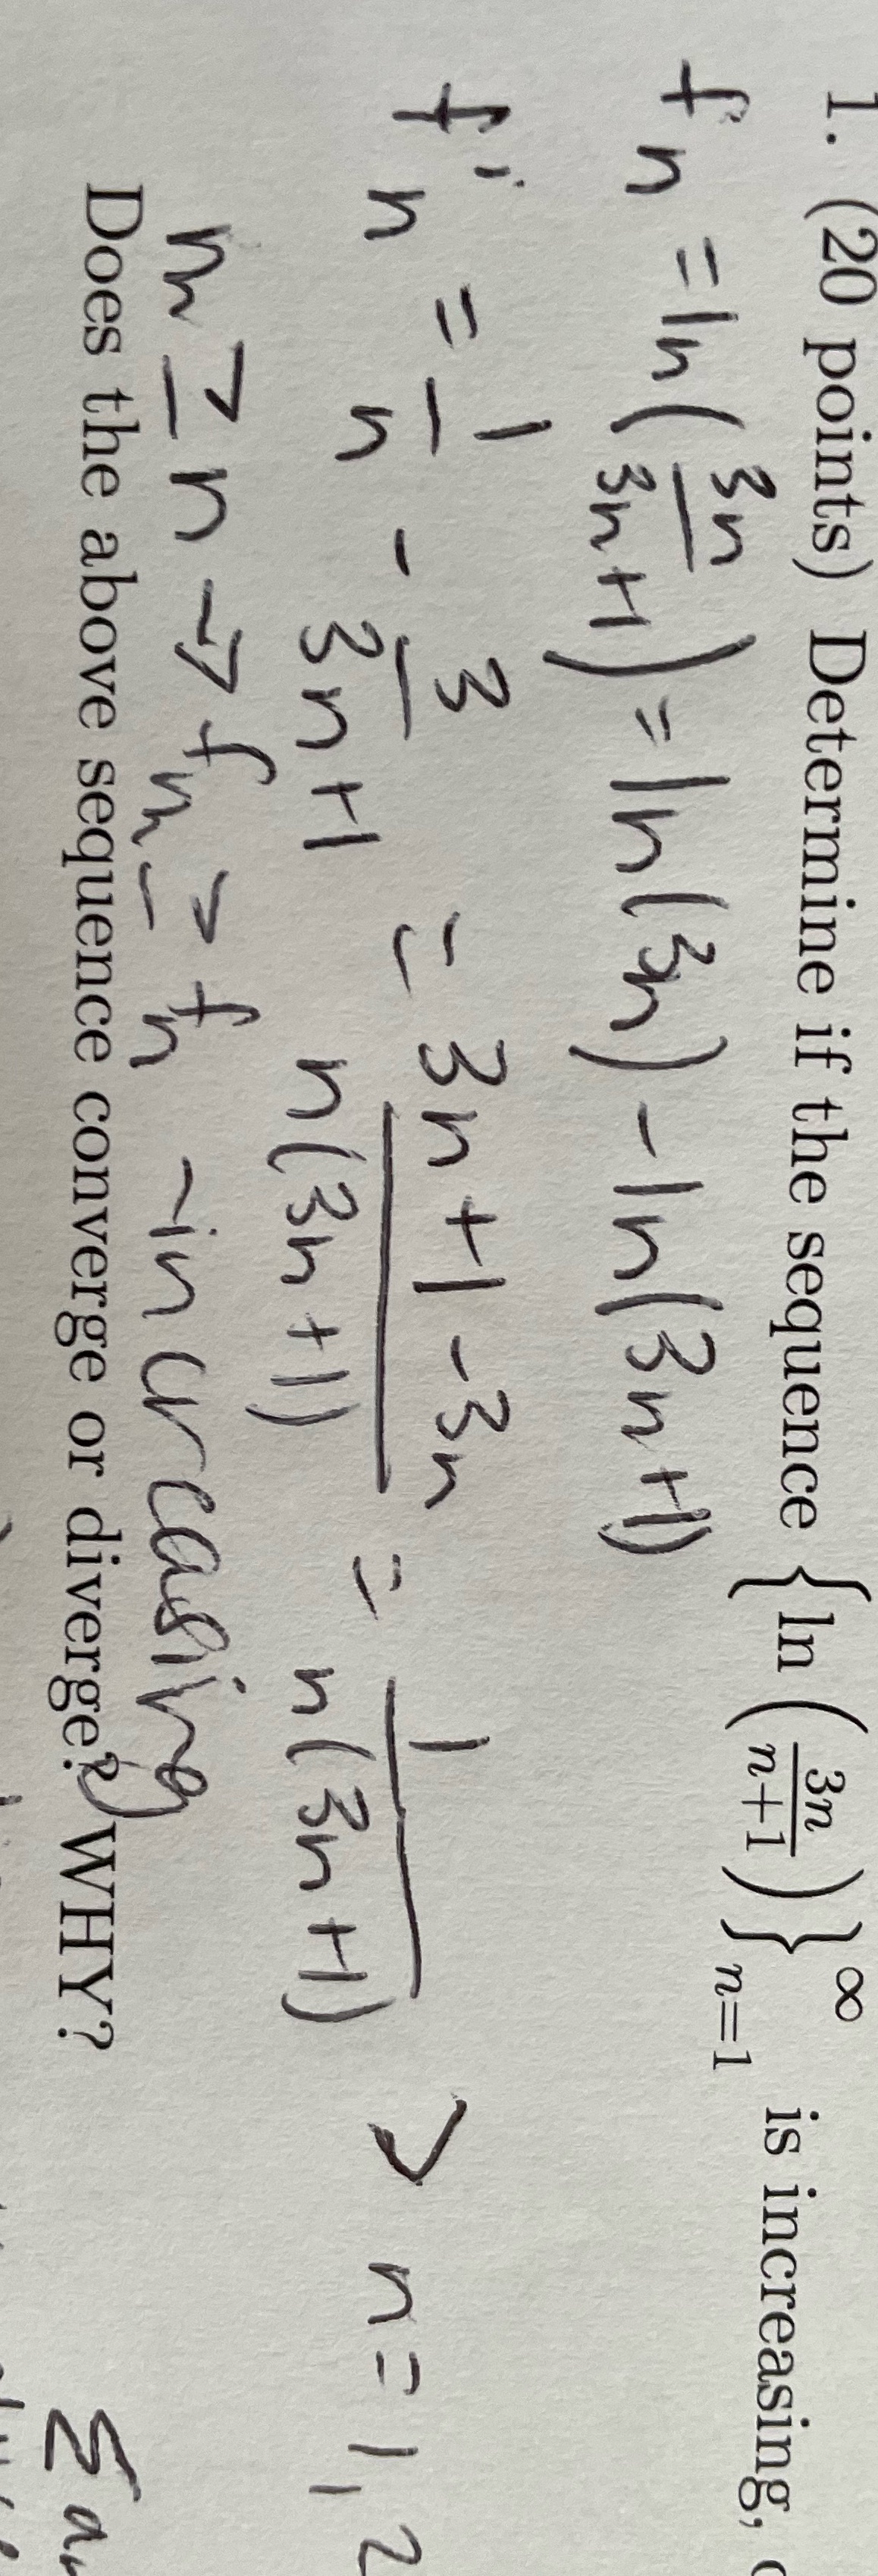 1. (20 points) Determine if the sequence {ln (3n/n+1)}∞n=1 is increasing,
fn = ln(3n/3n+1) = ln(3n) - ln(3n+1)
f'n = 1/n - 3/3n+1 = 3n+1-3n/n(3n+1) = 1/n(3n+1) > n=1,2
m ≥ n → fm ≥ fn - increasing
Does the above sequence converge or diverge? WHY?